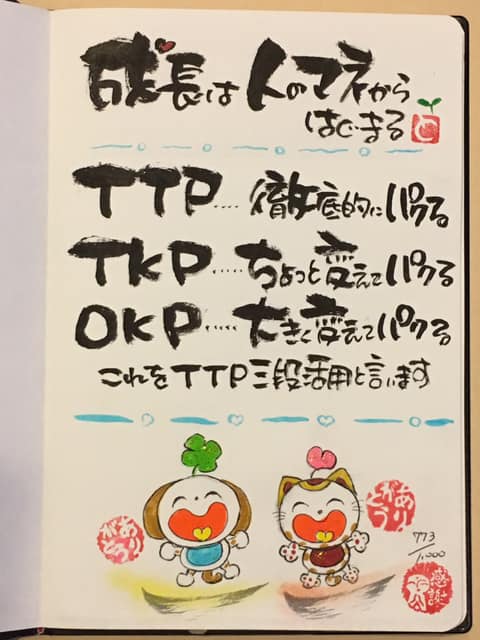 成長は人のマネから
はじまる
TTP.... 徹底的にパクる
TKP..... ちょっと変えてパクる
OKP..... 大きく変えてパクる
これをTTP三段活用と言います
ありがとう
ありがとう
773/1,000
感謝